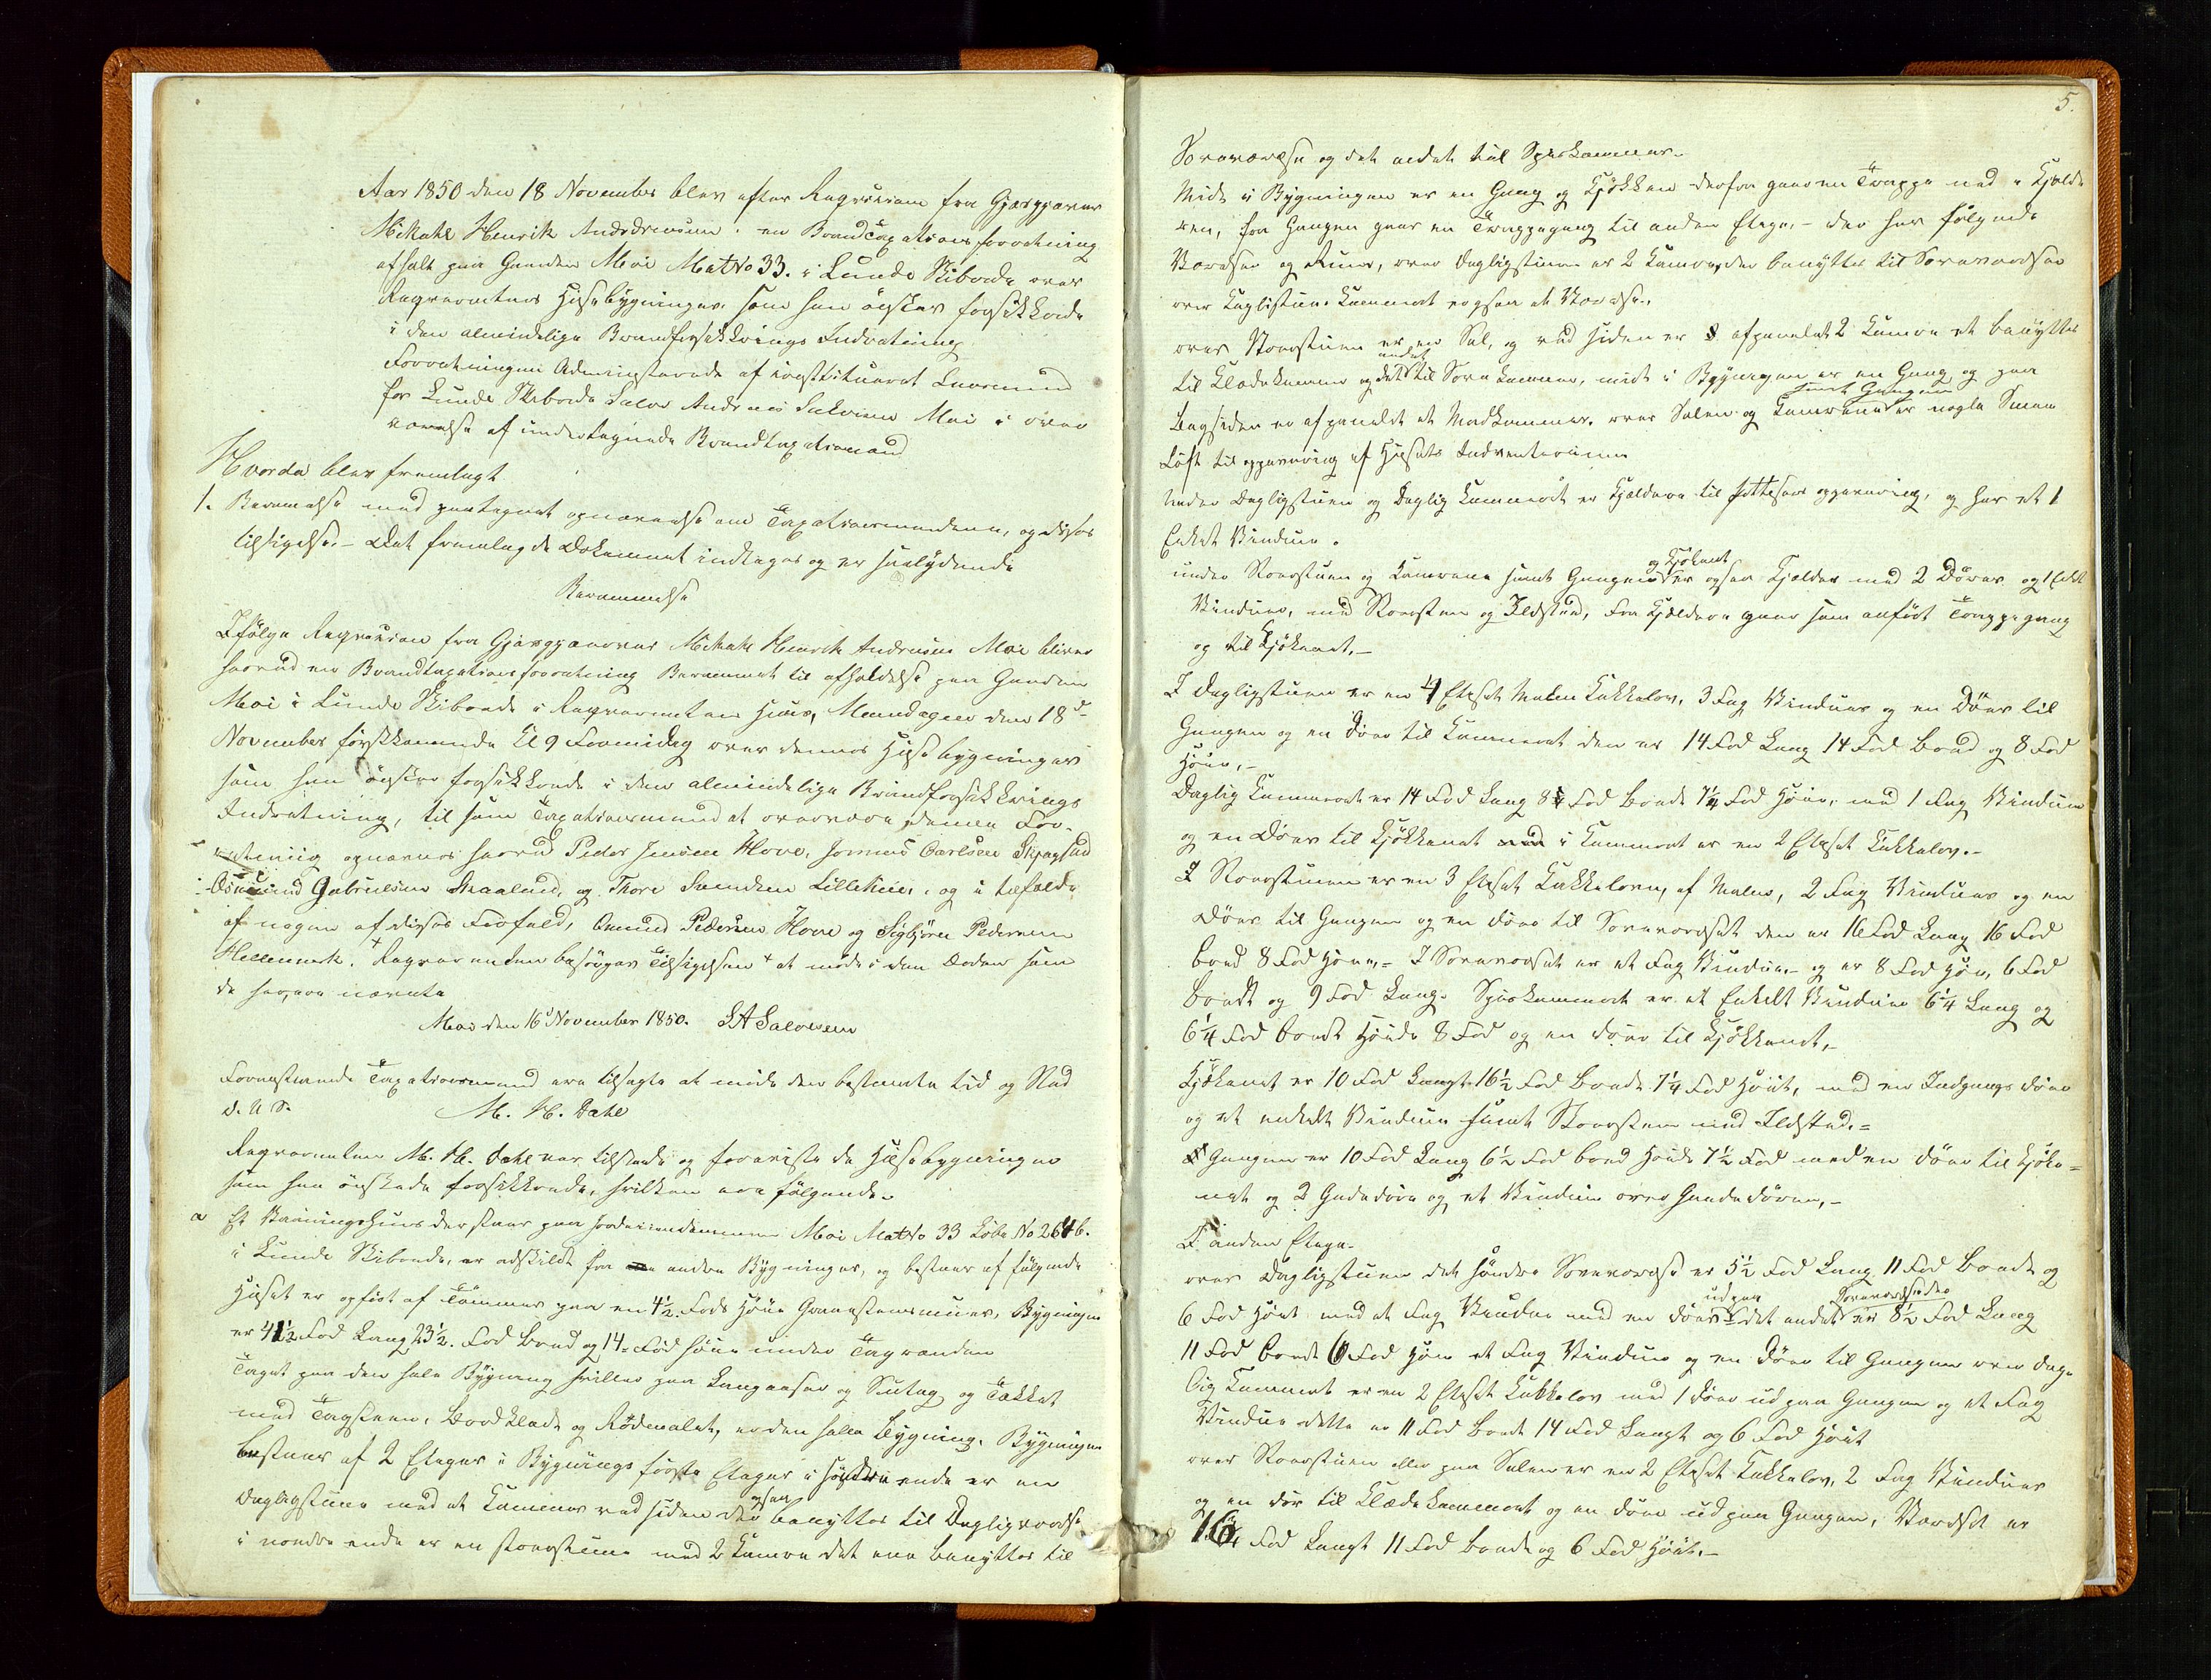 Aar 1850 den 18 November blev efter Reqvisition fra Gjæstgjæver
Mikahl Henrik Andedreasen en BrandTaxations forretning
afholt paa Gaarden Moi MatNo 33. i Lunde Skibrede over
Reqvirentens Huusebygninger som han önsker forsikkrede
i den almindelige Brandforsikkrings Indretning
Forretningen Adminstrerede af constitueret Lensmand
for Lunde Skibrede Salve Andreas Salvesen Moi i over
værelse af undertegnede Brandtaxationsmænd
Hvorda blev fremlagt
1. Berammelse med paategnet opnævnelse om Taxationsmændene, og disses
tilsigelse. - Det fremlagde Dokument indtages og er saalydende
Berammelse
Ifölge Reqvisition fra Gjæstgjæver Mikahl Henrik Andresen Moi bliver
herved en Brandtaxationsforretning Berammet til afholdelse paa Gaarden
Moi i Lunde Skibrede i Reqvirentens Huus, Mandagen den 18de
November förstkommende Kl 9 Formidag over dennes Huse bygninger
som han önsker forsikkrede i den almindelige Brandforsikkrings
Indretning, til som Taxationsmænd at overvære denne For-
retning opnævnes herved Peder Jensen Hove, Carlsen Skjægstad
Osmund Gabrielsen Skaalund, og Thore Svendsen Lillehei, og i tilfælde
af nogen af disses Forfald, Omund Pedersen Hove og Sigbjörn Pedersen
Hellemark. + Reqvirenten besörger Tilsigelsen + at möde i den Orden som
de herover nævnte
Moi den 16de November 1850. SA Salvesen
Foranstaaende Taxationsmænd ere tilsagte at möde den bestemte tid og Sted
d. U S. M. H. Dahl
Reqvirenten M. H. Dahl var tilstede og foreviste de Huusebygninger
som han önskede forsikkrede, hvilken ere fölgende -
a Et Vaaningshuus der staar paa Jordeiendommen Moi MatNo 33 Löbe No 264b.
i Lunde Skibrede, er adskildt fra andre Bygninger, og bestaar af fölgende
Huset er opfört af Tömmer paa en 4½. Fods Höie Graasteensmuur, Bygningen
er 41½ Fod Lang 23½. Fod Bred og 14 Fod höie under Tagranden
Taget paa den hele Bygning hviller paa Langaaser og Sutag og Tækket
med Tagsteen, Bordklædt og Rödmalet, er den hele Bygning. Bygningen
bestaar af 2 Etager i Bygnings förste Etager i söndre ende er en
Dagligstue med et Kammer ved siden der ogsaa benyttes til Dagligværelse
i nordre ende er en storstue med 2 Kamre det ene benyttes til
5.
Soveværelse og det andet til Spisekammer.
Midt i Bygningen er en Gang og Kjökken derfra gaar en Trappe ned i Kjælde
ren, fra Gangen gaar en Trappegang til anden Etage, - der har fölgende
Værelser og Rum, over Dagligstuen er 2 Kamre, der benyttes til Soveværelser
over Dagligstue Kammeret ogsaa et Værelse.
over Storstuen er en Sal, og ved siden er afpanelet 2 Kamre et benyttes
til Klædekammer og det andet til Sove kammer, midt i Bygningen er en Gang og paa
Bagsiden er afpanelet et Madkammer. over Salen og Kamrene samt Gangen er nogle Smaa
Loft til opbevaring af Husets Indventarium
Under Dagligstuen og Daglig Kammeret er Kjældere til Pottetes opbevaring, og har et 1
Enkelt Vindue.
under Storstuen og Kamrene samt Gangen og Kjökenet er ogsaa Kjelder med 2 Dörer og 1 Enkelt
Vindue, med Skorsteen og Ildsted, fra Kjælderen gaar som anfört Trappegang
op til Kjökenet. -
I Dagligstuen er en 4 Etages Malm Kakkelov, 3 Fag Vinduer og en Dör til
Gangen og en Dör til Kammeret den er 14 Fod Lang 14 Fod Bred og 8 Fod
Höie, -
Daglig Kammeret er 14 Fod Lang 8¼ Fod bredt 7¼ Fod Höie, med 1 Fag Vindue
og en Dör til Kjökkenet i Kammeret er en 2 Etages Kakkelov. -
I Storstuen er en 3 Etages Kakkelovn, af Malm, 2 Fag Vinduer og en
Dör til Gangen og en Dör til Soveværelset den er 16 Fod Lang 16 Fod
bred 8 Fod Höie. = I Soveværelset er et Fag Vindue. - og er 8 Fod höie, 6 Fod
bredt og 9 Fod Lang. Spisekammeret er et Enkelt Vindue 6¼ Lang og
6¼ Fod bredt Höide 8 Fod og en Dör til Kjökkenet, -
Kjökenet er 10 Fod Langt 16½ Fod Bredt 7¼ Fod Höit, med en Indgangs Dör
og et enkelt Vindue samt Skorsteen med Ildsted. =
Gangen er 10 Fod Lang 6½ Fod bred Höide 7½ Fod med en Dör til Kjöke=
net og 2 Gadedöre og et Vindue over Gadedören, -
I anden Etage.
over Dagligstuen det söndre Soveværelse er 5½ Fod Lang 11 Fod bredt og
6 Fod Höit med et Fag Vindue med en Dör ud paa det andet Soveværelse er 8½ Fod Lang
11 Fod bredt 6 Fod höie et Fag Vindue og en Dör til Gangen over Dag-
lig Kammeret er en 2 Etages Kakkelov med 1 Dör ud paa Gangen og et Fag
Vindue dette er 11 Fod bredt 14 Fod Langt og 6 Fod Höit
over Storstuen eller paa Salen er en 2 Etages Kakkelov, 2 Fag Vinduer
og en dör til Klædekammeret og en Döre ud paa Gangen, Værelset er
16 Fod Langt 11 Fod bredt og 6 Fod Höit. -